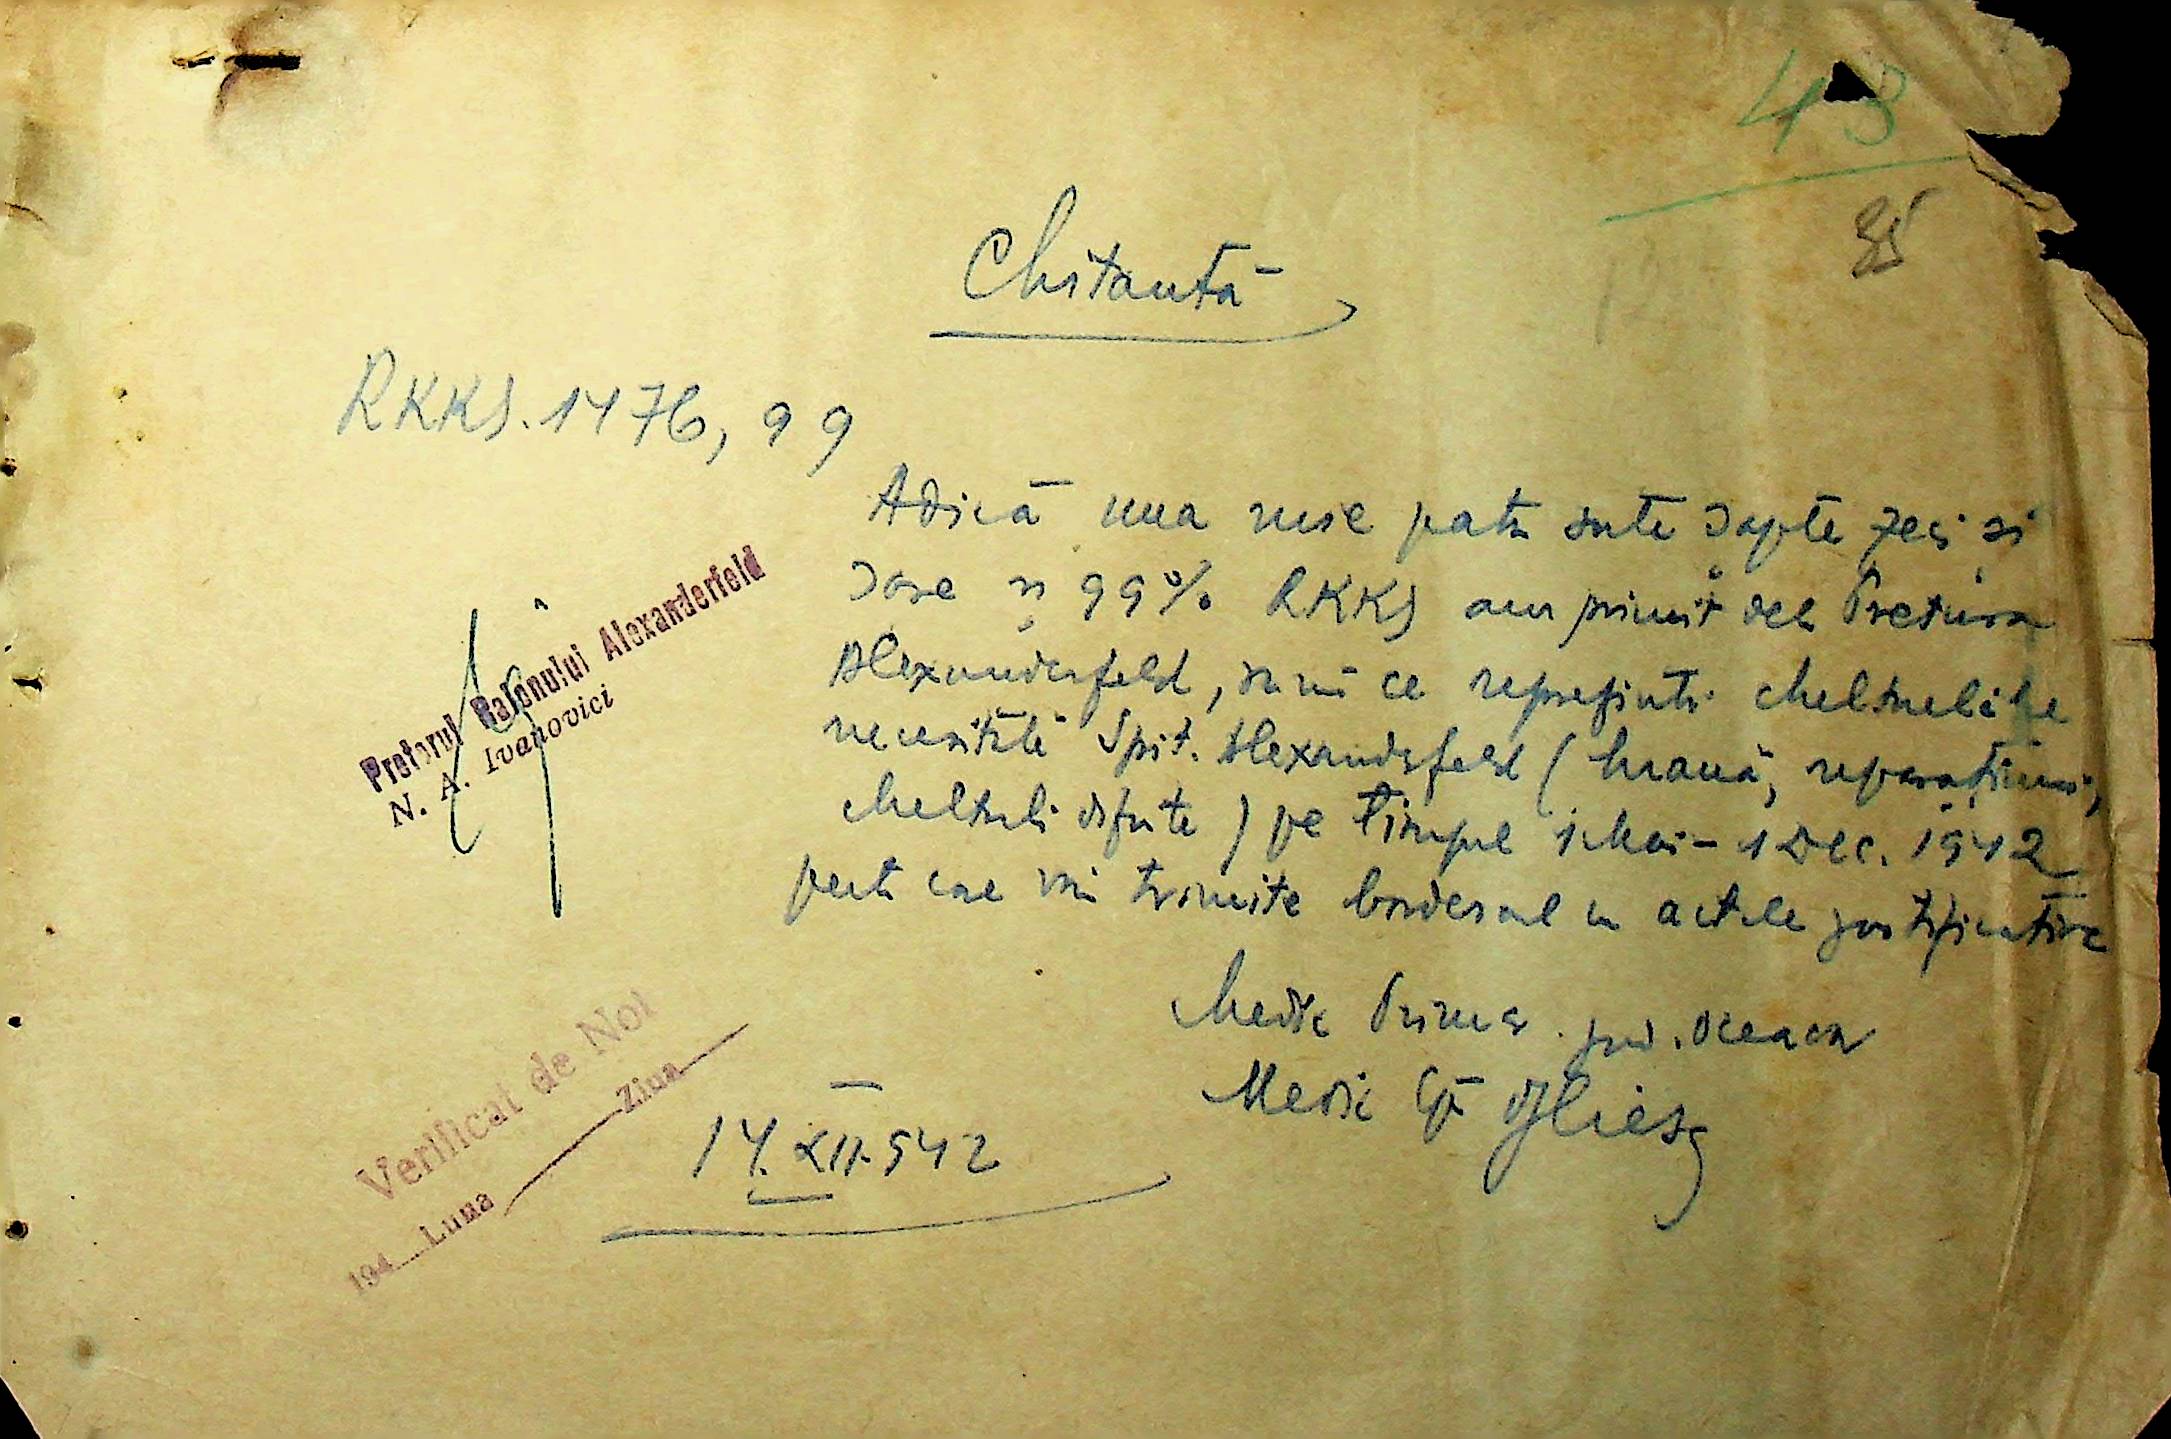 43
85
Chitanță
RKKS. 1476,99
Adică una mie patru sute șapte zeci și
șase și 99% RKKS am primit dela Pretura
Alexanderfeld, sumă ce reprezintă cheltuelile
necesităte Spit. Alexanderfeld (hrană, reparațiuni,
cheltueli diferite) pe timpul 1 Mai - 1 Dec. 1942
pentru care vă trimite borderoul cu actele justificative
Pretorul Raionului Alexanderfeld
N. A. Ivanovici
Medic Primar jud. Oceacov
Medic Cpt.
Verificat de Noi
194 Luna Ziua
14.XII.942